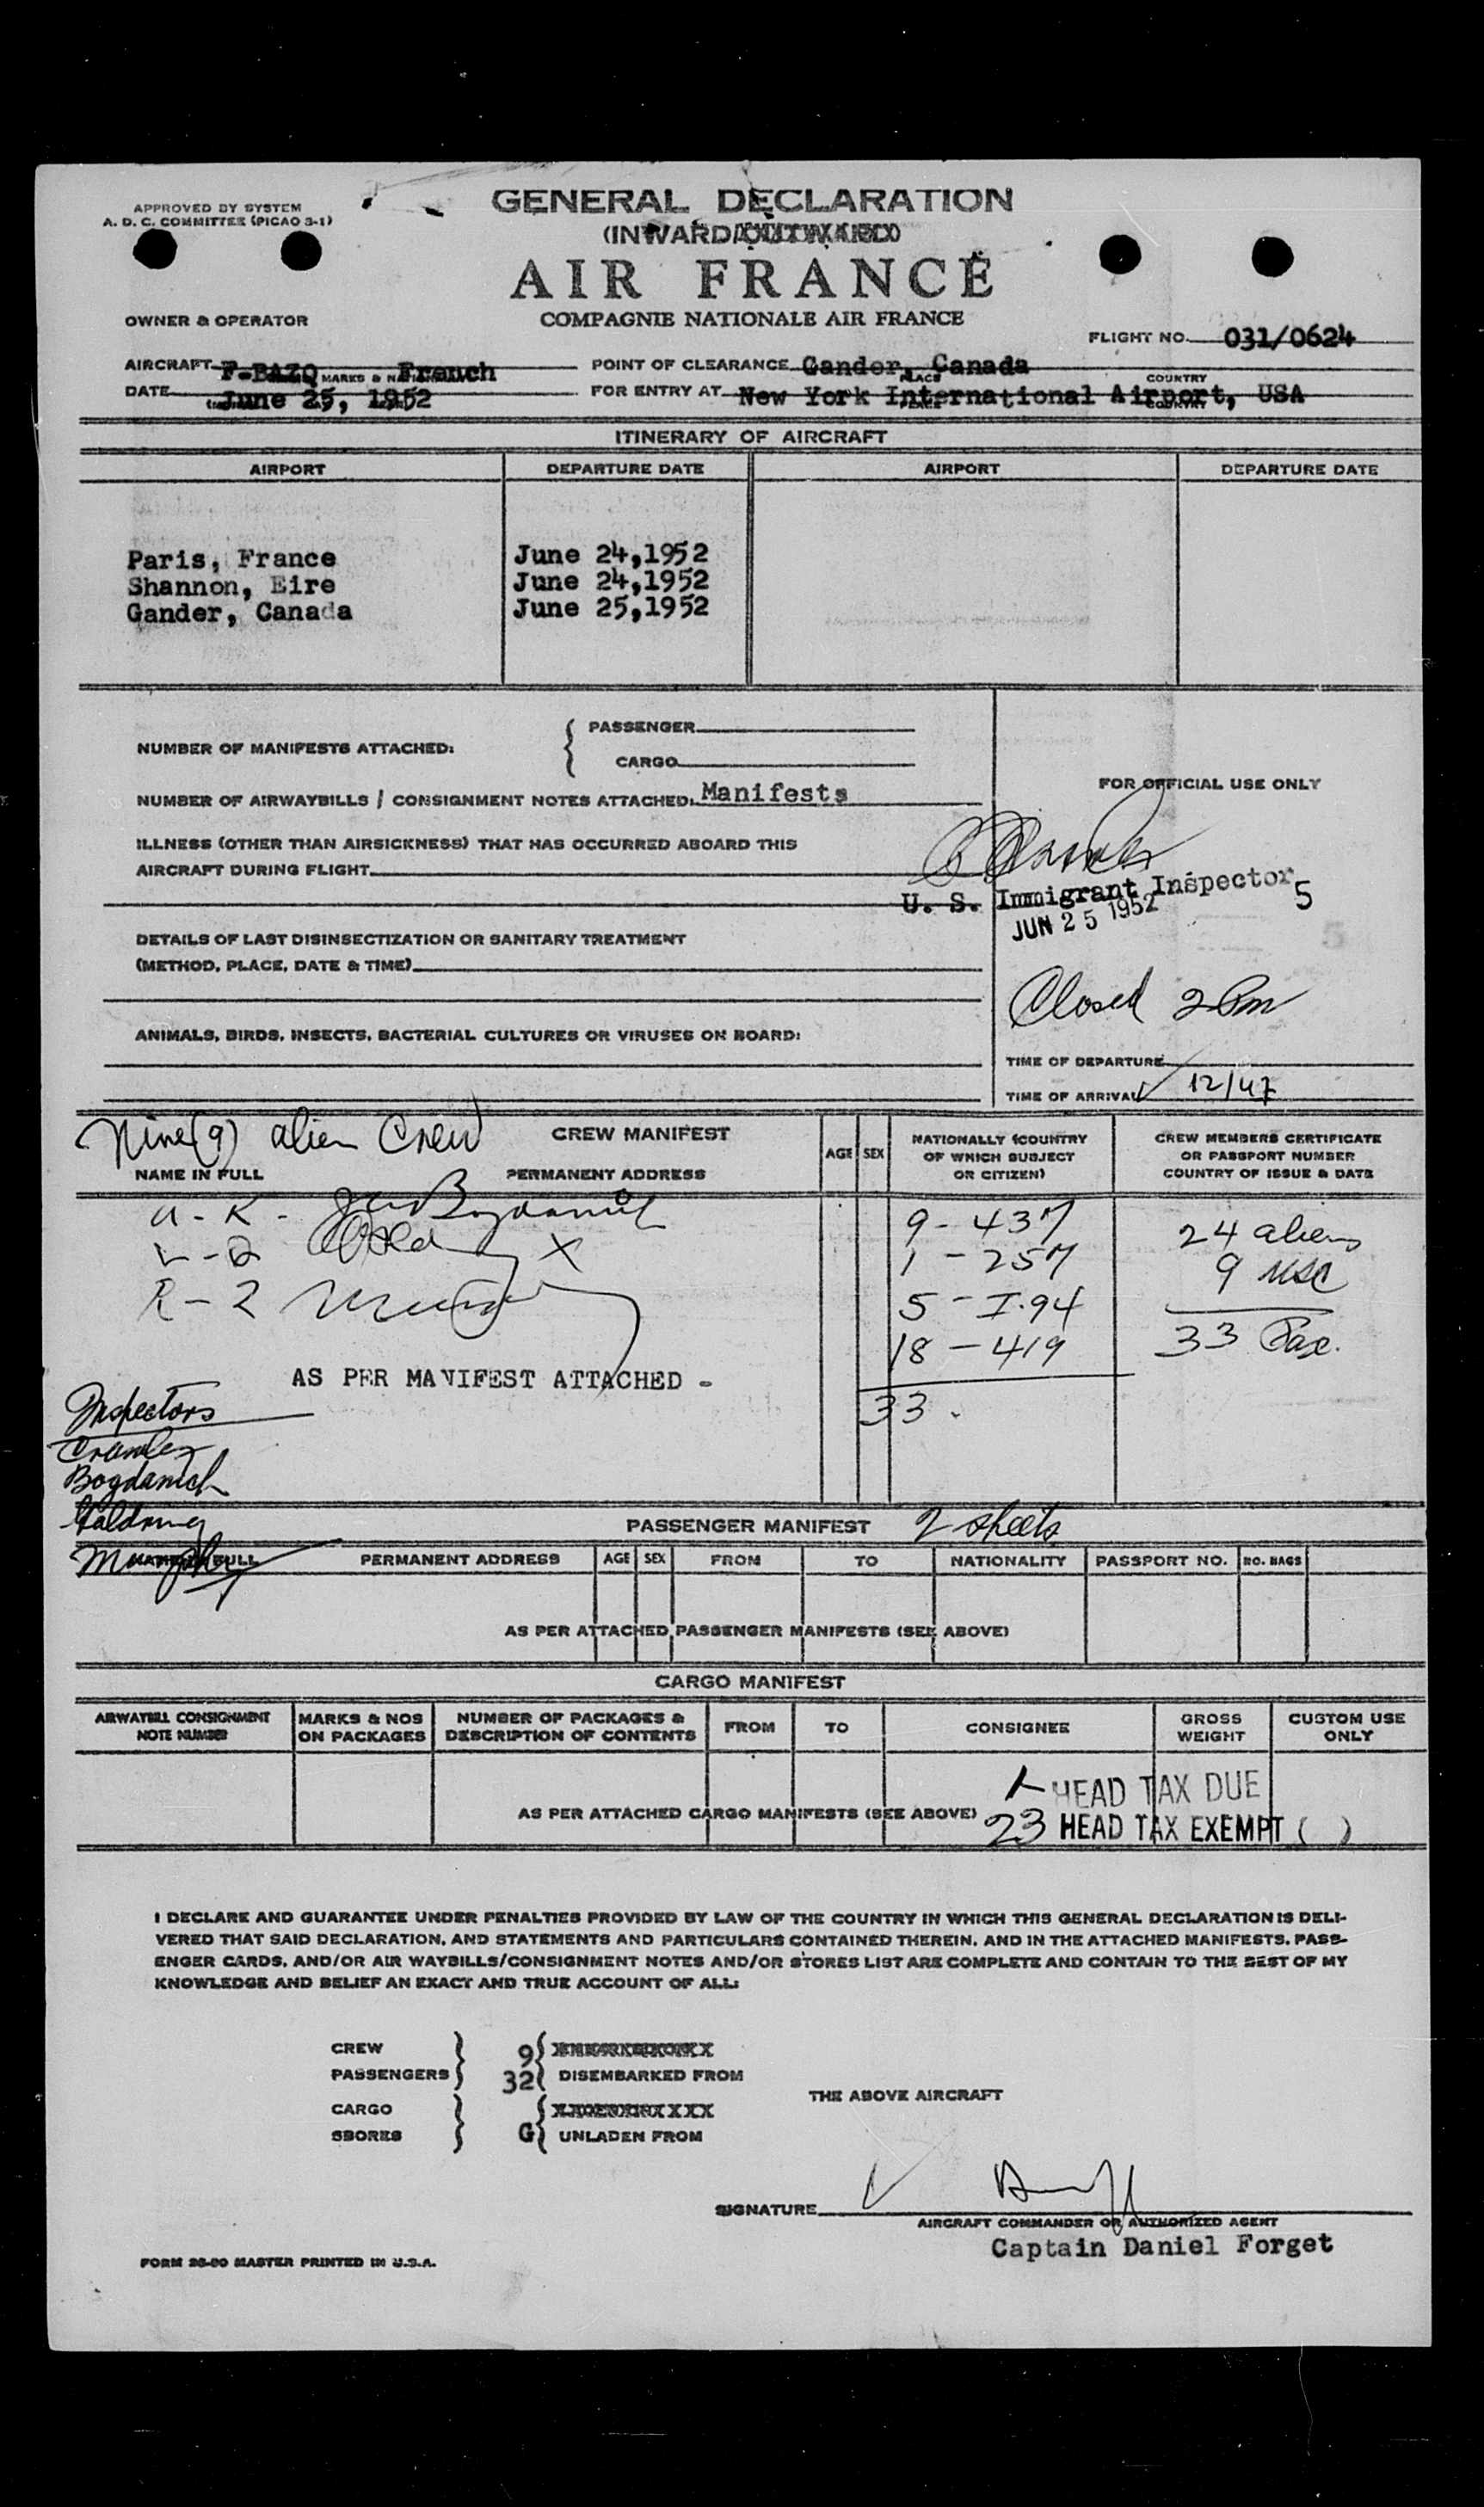 APPROVED BY SYSTEM
A. D. C. COMMITTEE (PICAO 3-1)
GENERAL DECLARATION
(INWARD/
AIR FRANCE
COMPAGNIE NATIONALE AIR FRANCE
OWNER & OPERATOR
FLIGHT NO. 031/0624
AIRCRAFT F-BAZQ MARKS & French
POINT OF CLEARANCE Gander, Canada
PLACE COUNTRY
DATE June 25, 1952
FOR ENTRY AT New York International Airport, USA
PLACE COUNTRY
ITINERARY OF AIRCRAFT
AIRPORT DEPARTURE DATE AIRPORT DEPARTURE DATE
Paris, France June 24,1952
Shannon, Eire June 24,1952
Gander, Canada June 25,1952
NUMBER OF MANIFESTS ATTACHED:
PASSENGER
CARGO
NUMBER OF AIRWAYBILLS / CONSIGNMENT NOTES ATTACHED: Manifests
FOR OFFICIAL USE ONLY
ILLNESS (OTHER THAN AIRSICKNESS) THAT HAS OCCURRED ABOARD THIS
AIRCRAFT DURING FLIGHT
U. S. Immigrant Inspector 5
JUN 25 1952
DETAILS OF LAST DISINSECTIZATION OR SANITARY TREATMENT
(METHOD, PLACE, DATE & TIME)
Closed 2 Pm
ANIMALS, BIRDS, INSECTS, BACTERIAL CULTURES OR VIRUSES ON BOARD:
TIME OF DEPARTURE
TIME OF ARRIVAL 12/47
Nine (9) alien Crew
CREW MANIFEST
NAME IN FULL PERMANENT ADDRESS AGE SEX
NATIONALLY (COUNTRY
OF WHICH SUBJECT
OR CITIZEN)
CREW MEMBERS CERTIFICATE
OR PASSPORT NUMBER
COUNTRY OF ISSUE & DATE
A - K - Bogdanich
9 - 437
24 aliens
X
1 - 257
9 USC
R - Z
5 - I-94
18 - 419
33 Pax.
AS PER MANIFEST ATTACHED -
33
Inspectors
Crawley
Bogdanich
Galdring
Murphy
PASSENGER MANIFEST 2 sheets
NAME IN FULL PERMANENT ADDRESS AGE SEX FROM TO NATIONALITY PASSPORT NO. NO. BAGS
AS PER ATTACHED PASSENGER MANIFESTS (SEE ABOVE)
CARGO MANIFEST
AIRWAYBILL CONSIGNMENT
NOTE NUMBER
MARKS & NOS
ON PACKAGES
NUMBER OF PACKAGES &
DESCRIPTION OF CONTENTS
FROM TO CONSIGNEE
GROSS
WEIGHT
CUSTOM USE
ONLY
1 HEAD TAX DUE
AS PER ATTACHED CARGO MANIFESTS (SEE ABOVE)
23 HEAD TAX EXEMPT ( )
I DECLARE AND GUARANTEE UNDER PENALTIES PROVIDED BY LAW OF THE COUNTRY IN WHICH THIS GENERAL DECLARATION IS DELI-
VERED THAT SAID DECLARATION, AND STATEMENTS AND PARTICULARS CONTAINED THEREIN, AND IN THE ATTACHED MANIFESTS, PASS-
ENGER CARDS, AND/OR AIR WAYBILLS/CONSIGNMENT NOTES AND/OR STORES LIST ARE COMPLETE AND CONTAIN TO THE BEST OF MY
KNOWLEDGE AND BELIEF AN EXACT AND TRUE ACCOUNT OF ALL:
CREW 9
PASSENGERS 32 DISEMBARKED FROM
THE ABOVE AIRCRAFT
CARGO
SBORES G UNLADEN FROM
SIGNATURE
AIRCRAFT COMMANDER OR AUTHORIZED AGENT
Captain Daniel Forget
FORM 26-90 MASTER PRINTED IN U.S.A.